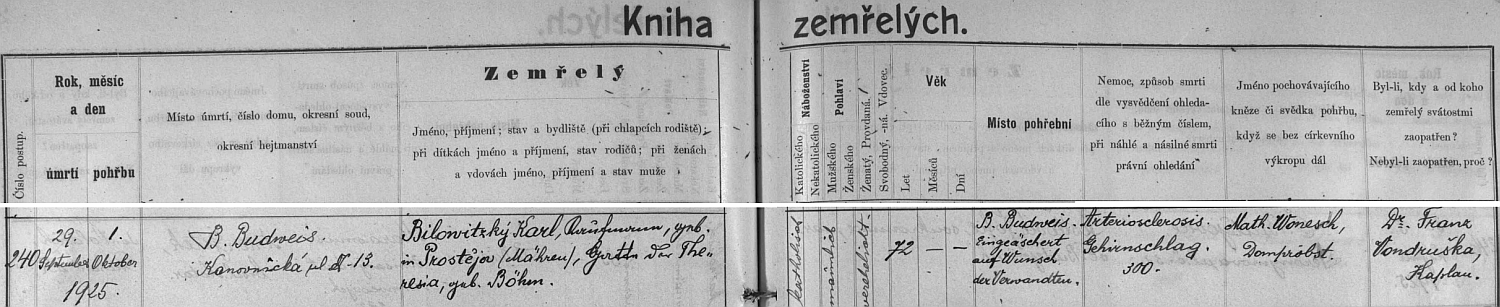 Kniha zemřelých.
Číslo postup.
Rok, měsíc
a den
úmrtí pohřbu
Místo úmrtí, číslo domu, okresní soud,
okresní hejtmanství
Zemřelý
Jméno, příjmení; stav a bydliště (při chlapcích rodiště);
při dítkách jméno a příjmení, stav rodičů; při ženách
a vdovách jméno, příjmení a stav muže
Katolického
Nekatolického
Náboženství
Mužského
Ženského
Pohlaví
Ženatý, Provdaná.
Svobodný, -ná. Vdovec.
Věk
Let
Měsíců
Dní
Místo pohřební
Nemoc, způsob smrti
dle vysvědčení ohleda-
cího s běžným číslem,
při náhlé a násilné smrti
právní ohledání
Jméno pochovávajícího
kněze či svědka pohřbu,
když se bez církevního
výkropu dál
Byl-li, kdy a od koho
zemřelý svátostmi
zaopatřen?
Nebyl-li zaopatřen, proč?
240
29. 1.
September Oktober
1925.
B. Budweis.
Kanovnická ul. N. 13.
Bilowitzky Karl, Kaufmann, geb.
in Prostějov (Mähren), Gatte der The-
resia, geb. Böhm.
katholisch
männlich
verehelicht.
72 — —
B. Budweis.
Eingeäschert
auf Wunsch
der Verwandten.
Arteriosclerosis.
Gehirnschlag.
300.
Math. Wonesch,
Dompropst.
Dr. Franz
Vondruška,
Kaplan.